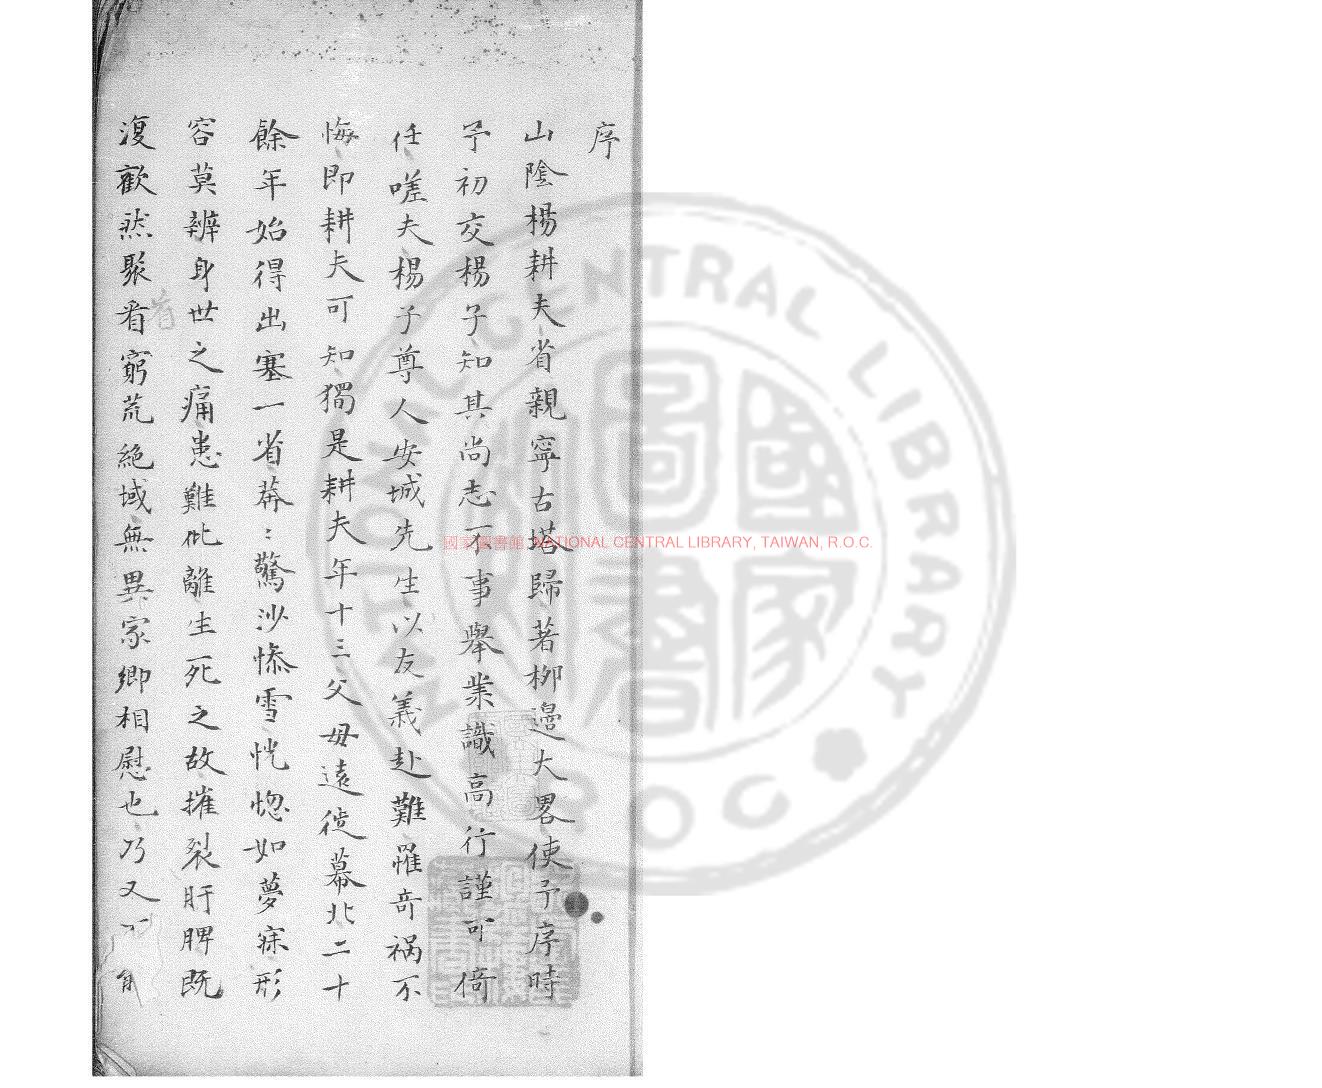 序
山陰楊耕夫省親寧古塔歸著柳邊大畧使予序時
予初交楊子知其尚志不事舉業識高行謹可倚
任嗟夫楊子尊人安城先生以友義赴難罹奇禍不
悔即耕夫可知獨是耕夫年十三父毋遠徙幕北二十
餘年始得出塞一省莽:驚沙慘雪恍惚如夢寐形
容莫辨身世之痛患難仳離生死之故摧裂肝脾既
復歡然聚看窮荒絶域無異家鄉相慰也乃又不能
看
國家圖書館 NATIONAL CENTRAL LIBRARY, TAIWAN, R.O.C.
NATIONAL CENTRAL LIBRARY
R.O.C.
國家圖書館